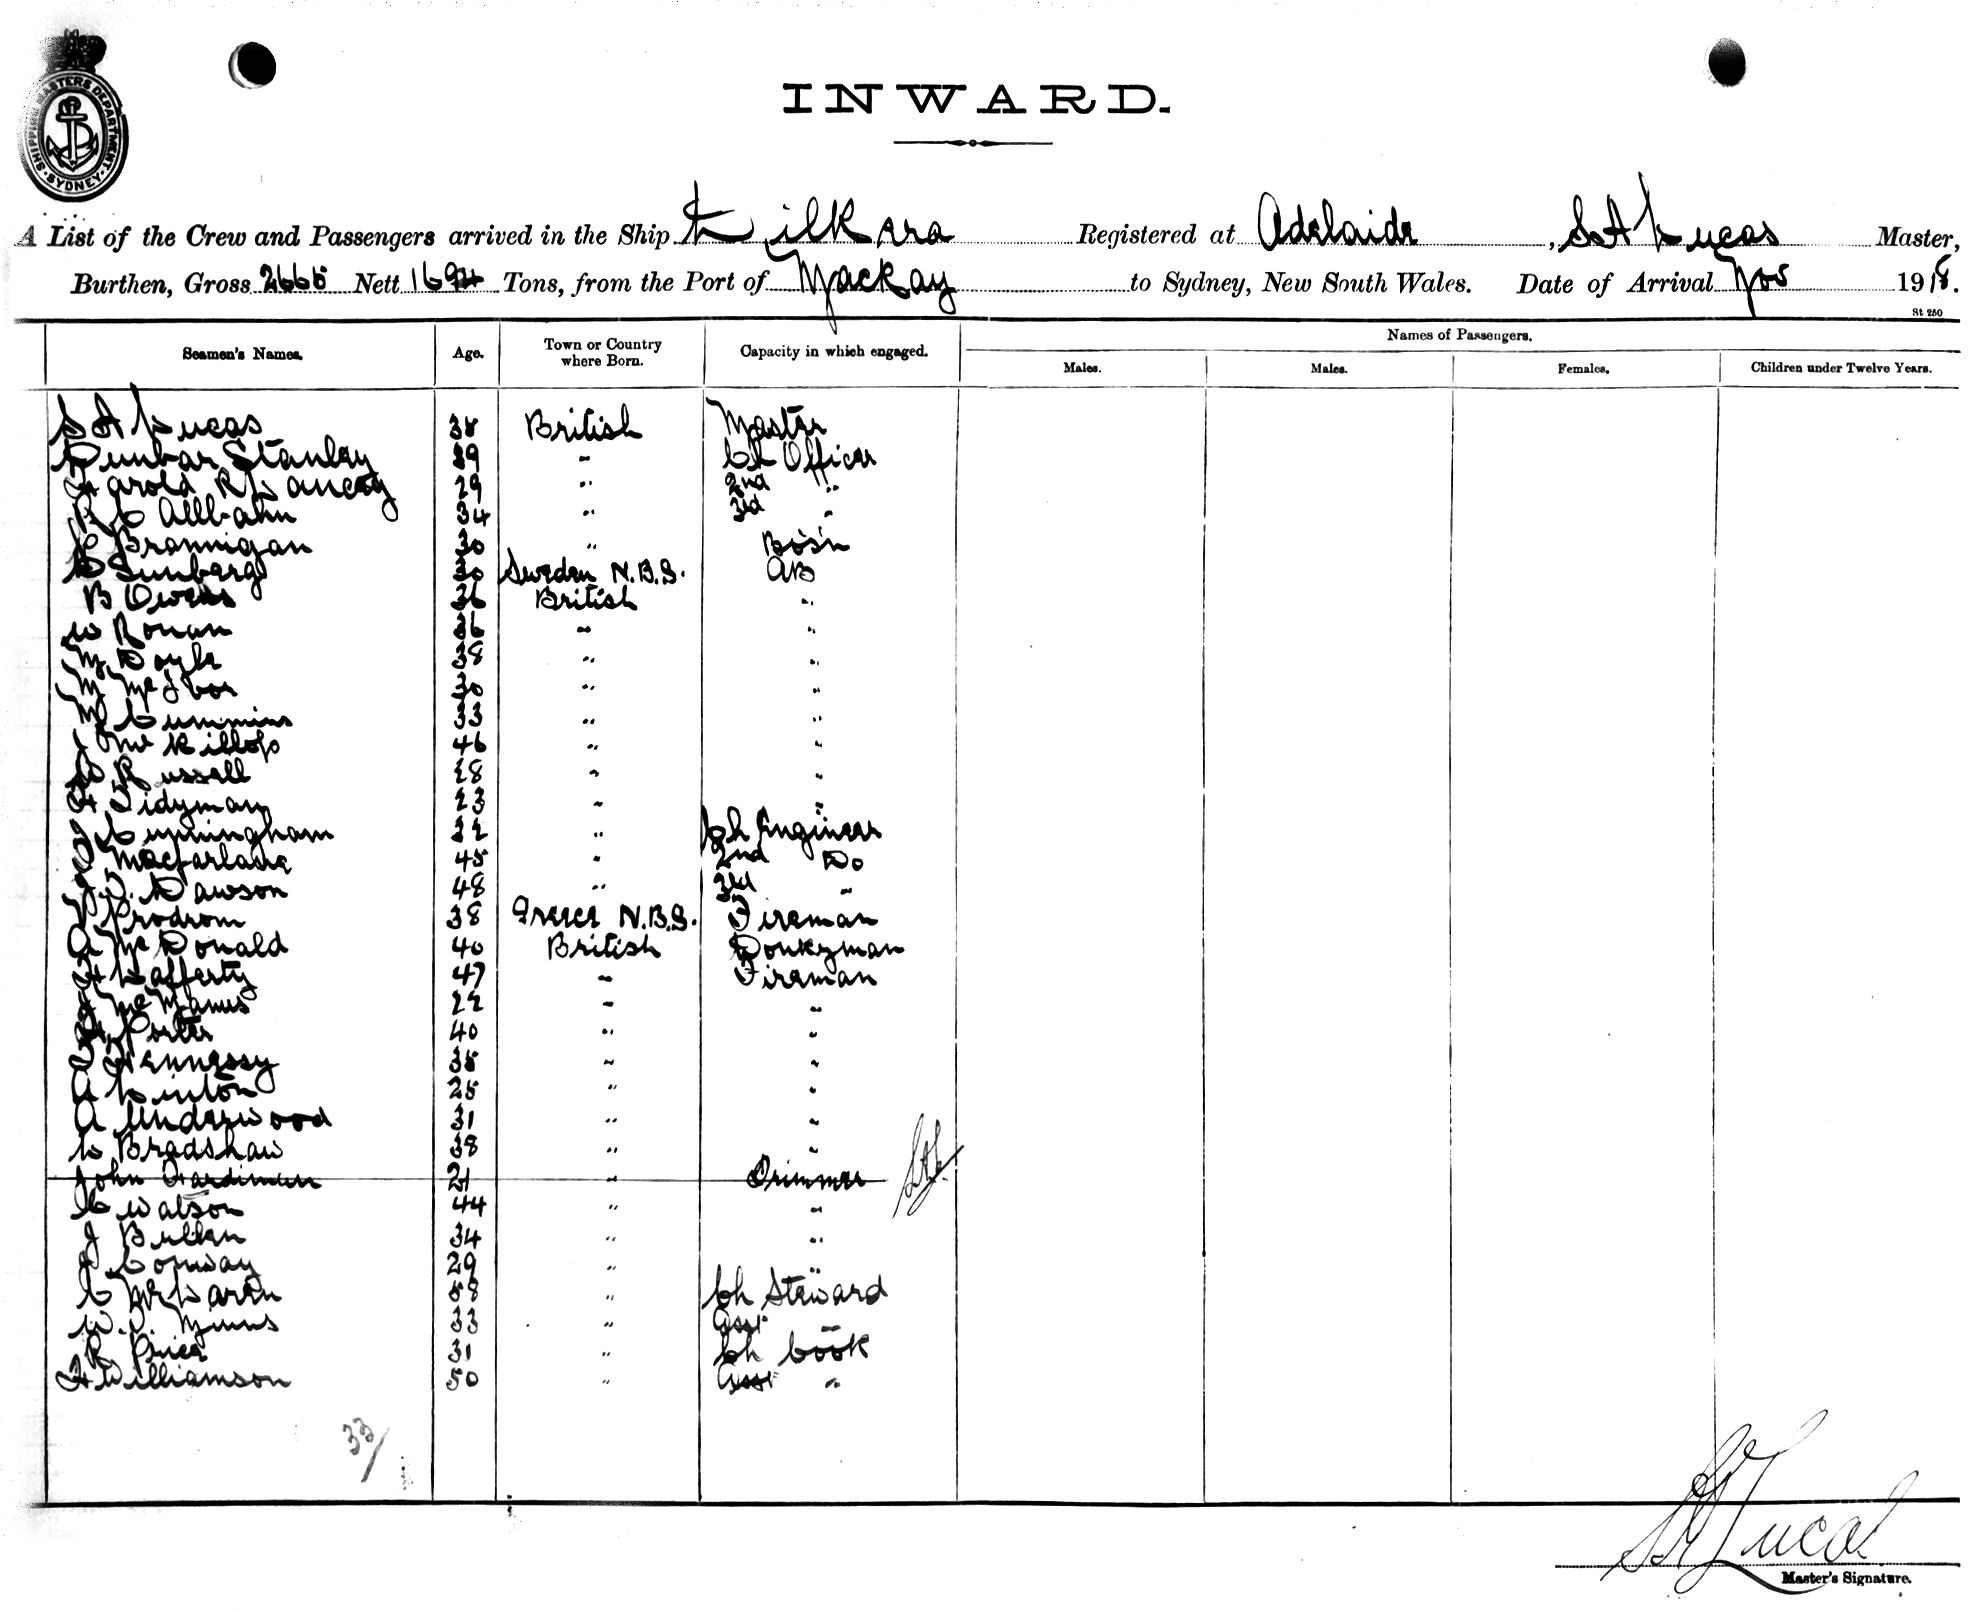 SHIPPING MASTERS DEPARTMENT. SYDNEY.
INWARD.
A List of the Crew and Passengers arrived in the Ship Kilkara Registered at Adelaide, S A Lucas Master,
Burthen, Gross 2665 Nett 1694 Tons, from the Port of Mackay to Sydney, New South Wales. Date of Arrival Nov 1918.
St 250
Seamen's Names. Age. Town or Country where Born. Capacity in which engaged. Names of Passengers.
Males. Males. Females. Children under Twelve Years.
S A Lucas 38 British Master
Dunbar Stanley 39 " Ch Officer
Harold R Lancey 29 " 2nd "
R C Allbahn 34 " 3rd "
Brannigan 30 " Bosn
Sunberg 30 Sweden N.B.S. AB
B Owens 36 British "
W Ronan 36 " "
M Doyle 38 " "
M McIvor 30 " "
M Cummins 33 " "
J McKillop 46 " "
Russell 28 " "
H Tidyman 23 " "
J Cunningham 32 " Ch Engineer
D Macfarlane 45 " 2nd Do
J. D. Dawson 48 " 3rd "
Prodrom 38 Greece N.B.S. Fireman
A McDonald 40 British Donkyman
H Lafferty 47 " Fireman
J McManus 22 " "
H Porter 40 " "
T Hennessy 35 " "
A Linton 25 " "
A Underwood 31 " "
Bradshaw 38 " "
John Hardiman 21 " Trimmer SAL
C Watson 44 " "
J Bullen 34 " "
J Conway 29 " "
C McLaren 58 " Ch Steward
W. Minns 33 " Asst "
R Price 31 " Ch Cook
H Williamson 50 " Asst "
33/
S A Lucas
Master's Signature.